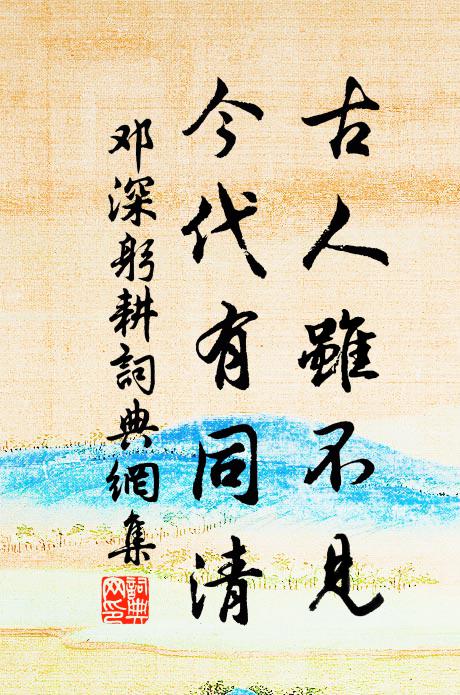 古人雖不見
今代有同清
邓深躬耕詞典網集
詞典